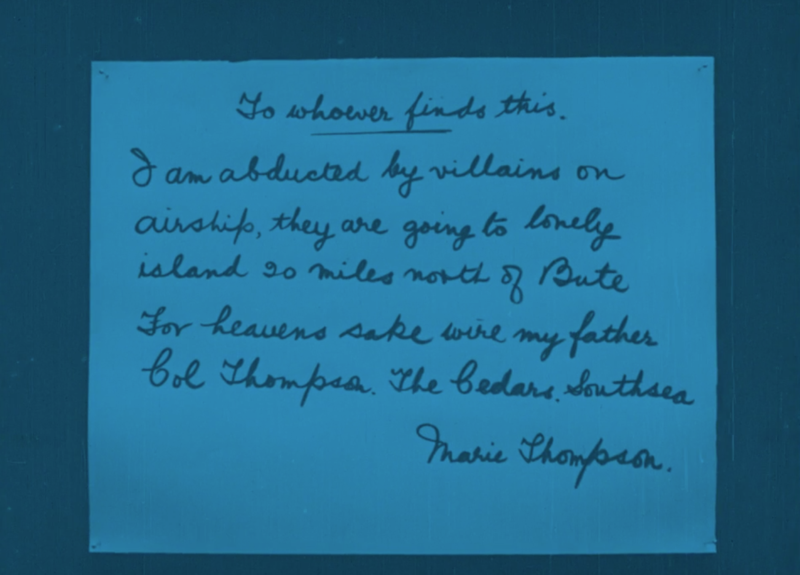 To whoever finds this.
I am abducted by villains on
airship, they are going to lonely
island 20 miles north of Bute
For heavens sake wire my father
Col Thompson. The Cedars. Southsea
Marie Thompson.